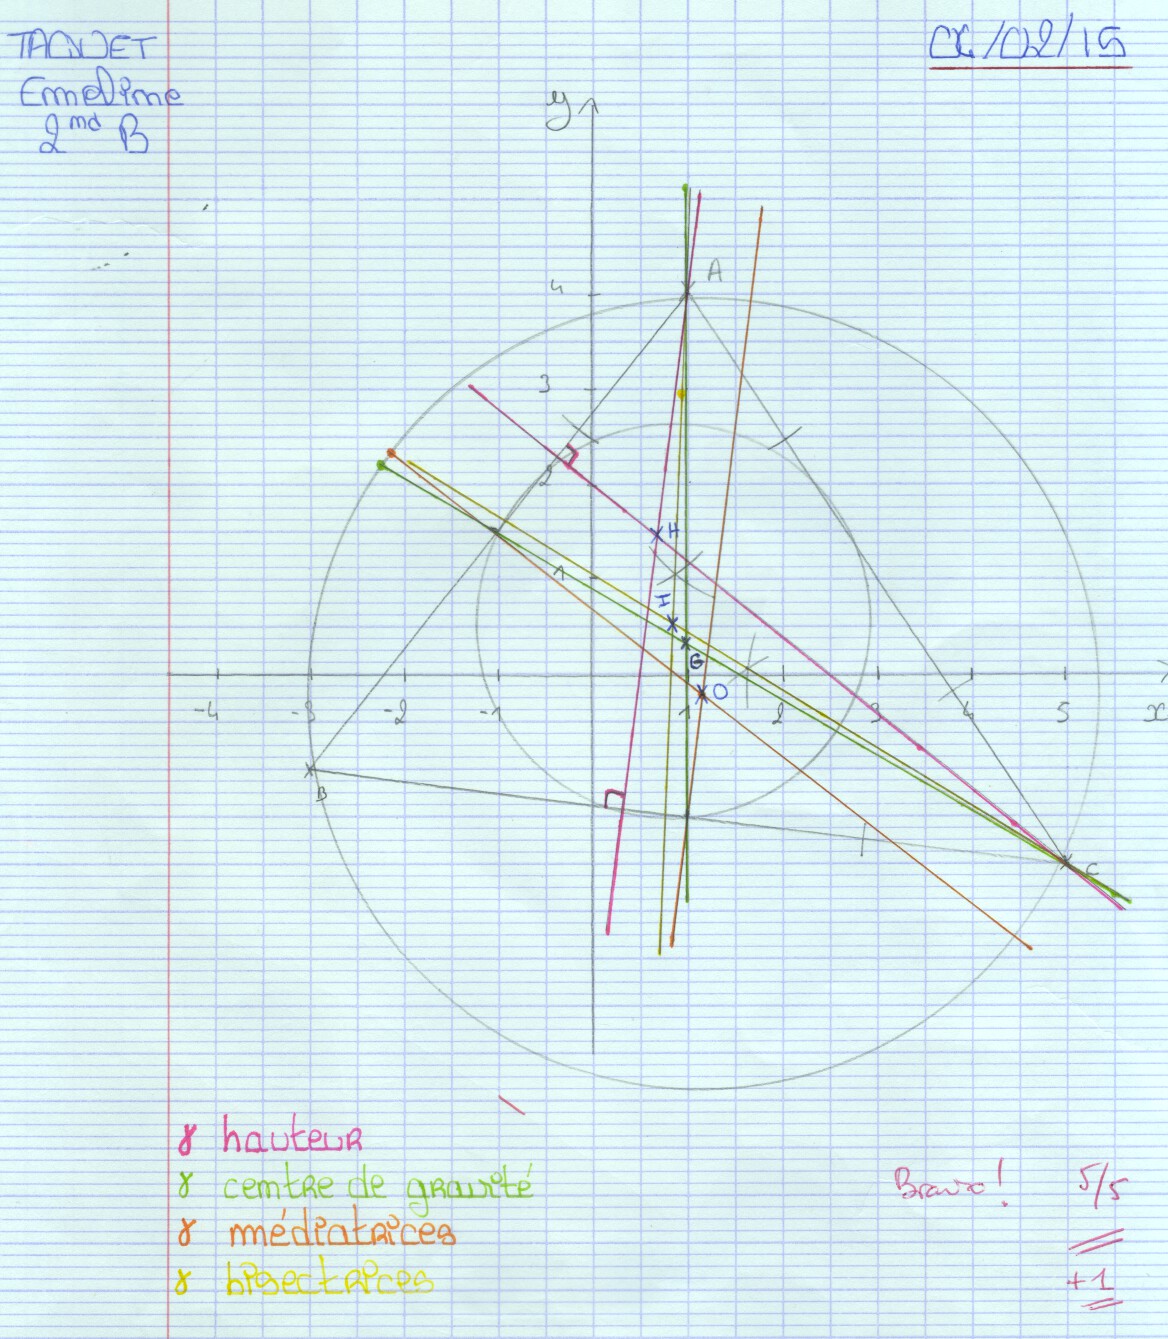 TAQUET
Emeline
2nd B
06/02/15
y
A
4
3
2
H
1
I
G
O
-4 -3 -2 -1 1 2 3 4 5 x
B
C
hauteur
centre de gravité
médiatrices
bisectrices
Bravo! 5/5
+1